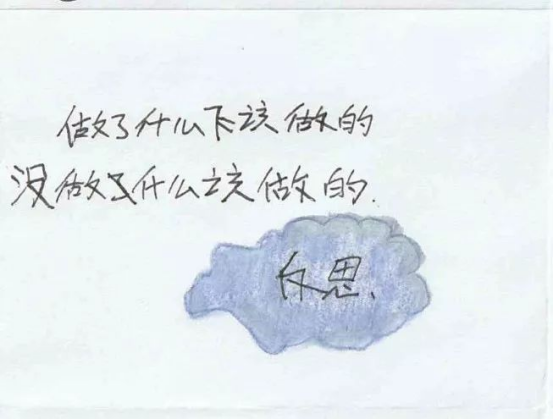 做了什么不该做的
没做了什么该做的.
反思.